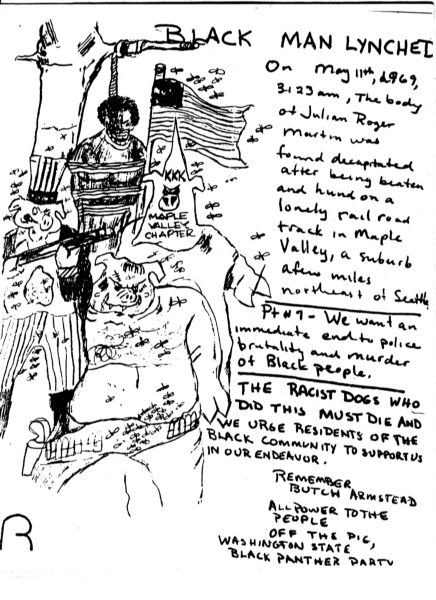 BLACK MAN LYNCHED
On May 11th, 1969,
3:23 am, The body
of Julian Roger
Martin was
found decapitated
after being beaten
and hund on a
lonely rail road
track in Maple
Valley, a suburb
a few miles
northeast of Seattle
KKK
MAPLE
VALLEY
CHAPTER
Pt #7 - We want an
immediate end to police
brutality and murder
of Black people.
THE RACIST DOGS WHO
DID THIS MUST DIE AND
WE URGE RESIDENTS OF THE
BLACK COMMUNITY TO SUPPORT US
IN OUR ENDEAVOR.
REMEMBER
BUTCH ARMSTEAD
ALL POWER TO THE
PEOPLE
OFF THE PIG,
WASHINGTON STATE
BLACK PANTHER PARTY
R